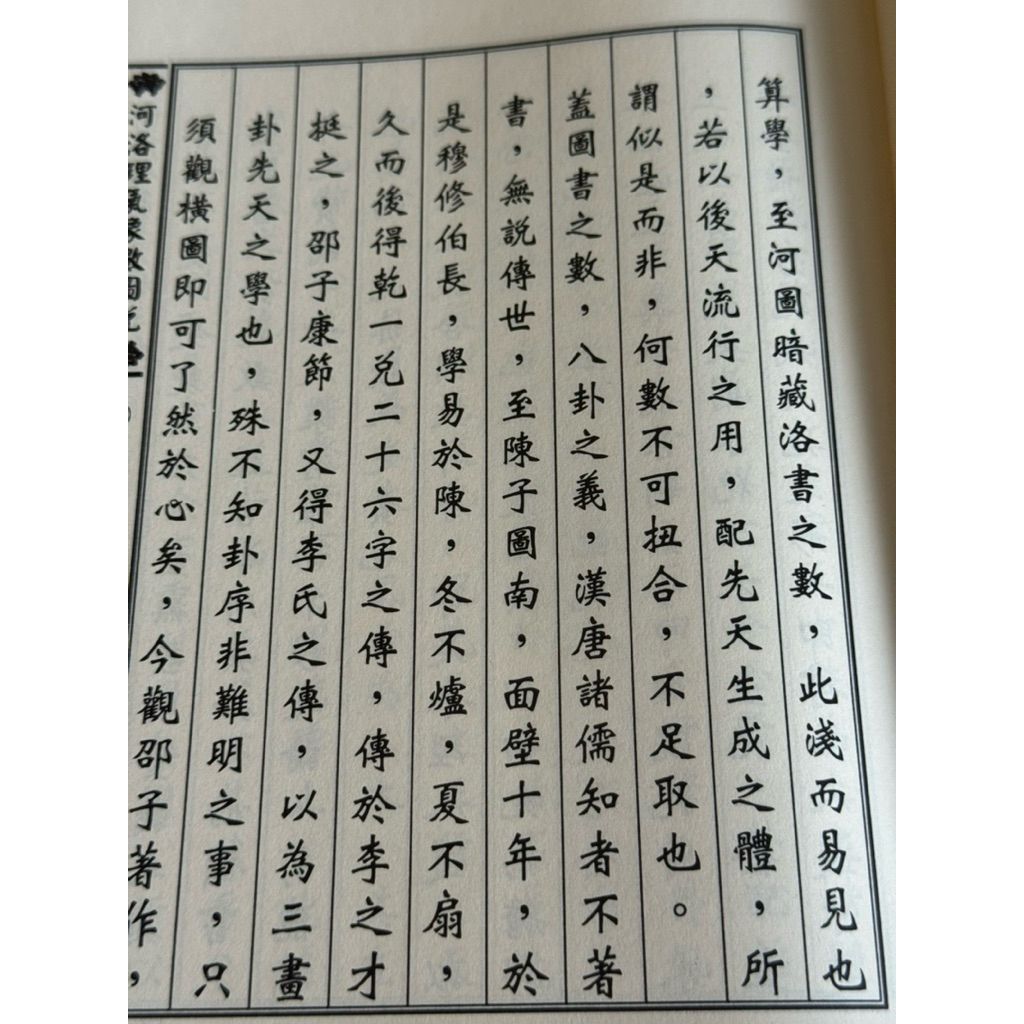 算學，至河圖暗藏洛書之數，此淺而易見也
，若以後天流行之用，配先天生成之體，所
謂似是而非，何數不可扭合，不足取也。
蓋圖書之數，八卦之義，漢唐諸儒知者不著
書，無説傳世，至陳子圖南，面壁十年，於
是穆修伯長，學易於陳，冬不爐，夏不扇，
久而後得乾一兌二十六字之傳，傳於李之才
挺之，邵子康節，又得李氏之傳，以為三畫
卦先天之學也，殊不知卦序非難明之事，只
須觀橫圖即可了然於心矣，今觀邵子著作，
河洛理氣象數圖説